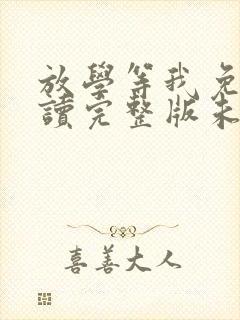 放學等我免
讀完整版未
喜善大人